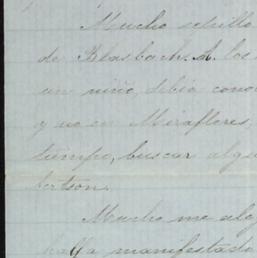 Mucho
de Blasbach. A los
un niño, debía cono
y no en Miraflores,
tiempo, buscar algu
bertson.
Mucho me ale
haya manifestado